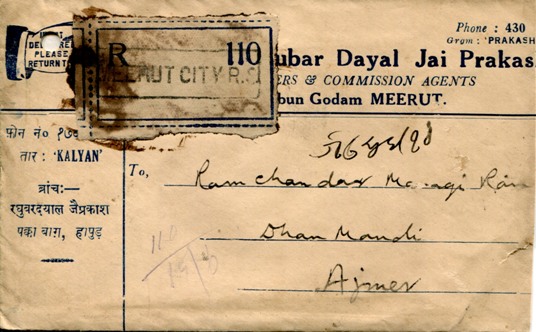 Phone : 430
Grgm : 'PRAKASH
DELIVERED
PLEASE
RETURN TO
R 110
MEERUT CITY R.S
ubar Dayal Jai Prakas
ERS & COMMISSION AGENTS
bun Godam MEERUT.
फोन नं० १७
तार : 'KALYAN'
ब्रांच:—
रघुबरदयाल जैप्रकाश
पक्का बाग़, हापुड़
To,
Ram chandar
Dhan Mandi
Ajmer
110